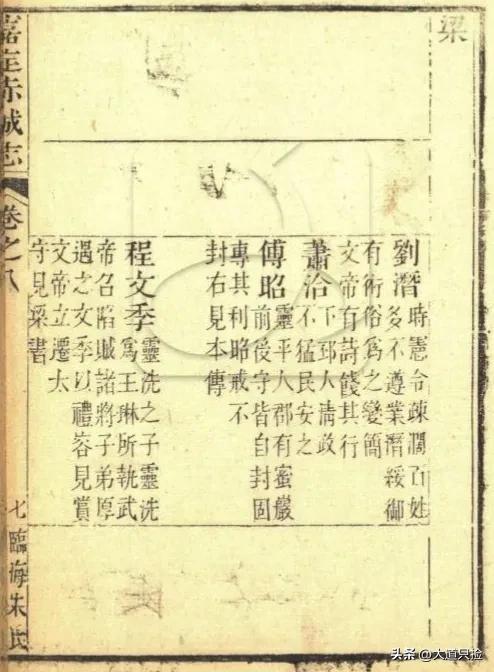 梁
劉潛
時憲令疎濶百姓
多不遵業潛綏御
有術俗爲之變簡
文帝有詩餞其行
蕭洽
下邳人淸政
不猛民安之
傅昭
靈平人郡有蜜巖
前後守皆自封固
專其利昭戒不
封右見本傳
程文季
靈洗之子靈洗
爲王琳所執武
帝召陷賊諸將子弟厚
遇之文季以禮容見賞
文帝立遷太
守見梁書
嘉定赤城志
卷之八
七
臨海朱氏
头条 @大道只捡